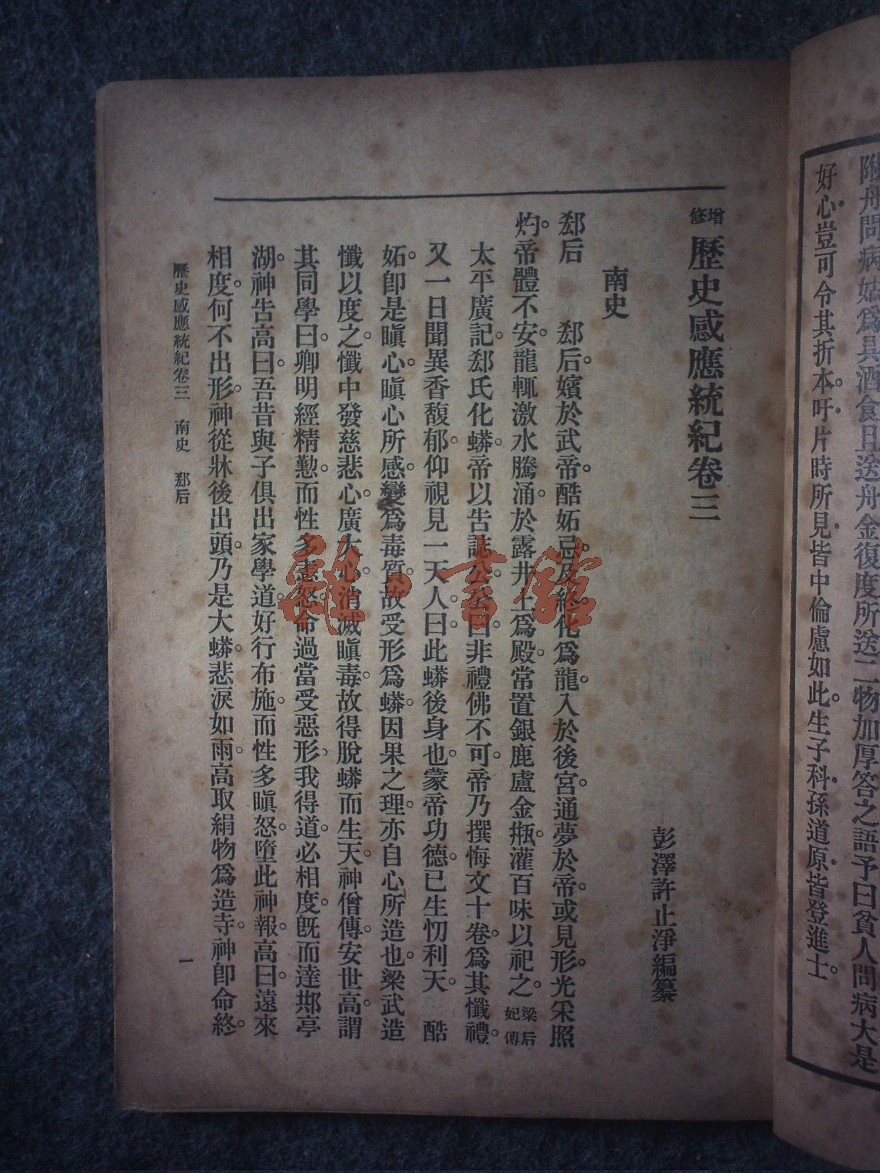 附舟問病姑爲具酒食且送舟金復度所送二物加厚答之語予曰貧人問病大是
好心豈可令其折本吁片時所見皆中倫慮如此生子科孫道原皆登進士。
增修 歷史感應統紀卷三
彭澤許止淨編纂
南史
郄后　郄后。嬪於武帝。酷妬忌。及終。化爲龍。入於後宮。通夢於帝。或見形。光采照
灼。帝體不安。龍輒激水騰涌。於露井上爲殿。常置銀鹿盧金瓶。灌百味以祀之。梁后妃傳
太平廣記。郄氏化蟒。帝以告誌公。公曰。非禮佛不可。帝乃撰悔文十卷。爲其懺禮。
又一日。聞異香馥郁。仰視見一天人。曰。此蟒後身也。蒙帝功德。已生忉利天。　酷
妬卽是瞋心。瞋心所感。變爲毒質。故受形爲蟒。因果之理。亦自心所造也。梁武造
懺以度之。懺中發慈悲心。廣大心。消滅瞋毒。故得脫蟒而生天。神僧傳。安世高謂
其同學曰。卿明經精勤。而性多恚怒。命過當受惡形。我得道必相度。旣而達䢼亭
湖。神告高曰。吾昔與子俱出家學道。好行布施。而性多瞋怒。墮此神報。高曰。遠來
相度。何不出形。神從牀後出頭。乃是大蟒。悲淚如雨。高取絹物爲造寺。神卽命終。
歷史感應統紀卷三　南史　郄后
一
雜·書館